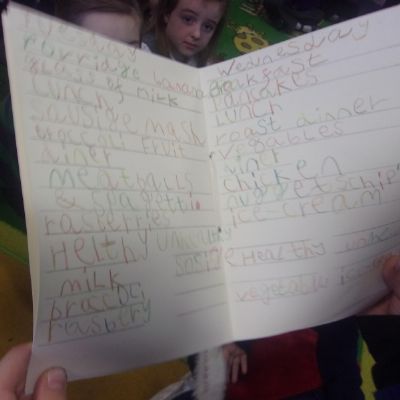 Tuesday
Porridge banana
glass of milk
Lunch
sausage mash
broccoli fruit
diner
meatballs
& spagetti
rasberries
Helthy unhealthy
milk
rasbery
Wednesday
Breakfast
Pancakes
Lunch
roast dinner
vegetables
diner
chicken
nuggets chips
ice-cream
Healthy
vegetable